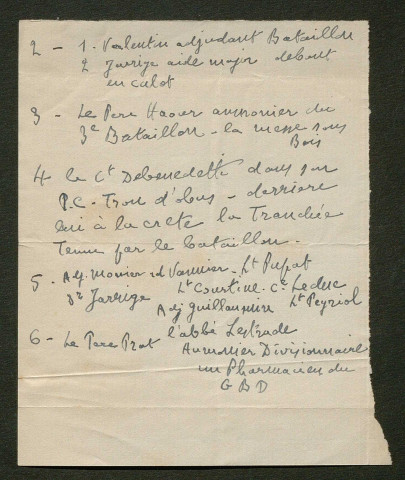 2 - 1. Valentin adjudant Bataillon
2 Jarrige aide major debout
en calot
3 - Le Pere Haour aumonier du
3e Bataillon - la messe sous
Bois
4 le Ct Debenedetti dans son
P.C. Trou d'obus - derriere
lui à la crete la Tranchée
Tenue par le bataillon.
5 - Adj. Monier Vannier - Lt Pupat
Dr Jarrige Lt Courtine - Ce Leduc
Adj Guillaumin Lt Peyriol
6 - Le Pere Prat l'abbé Lestrade
Aumonier Divisionnaire
un Pharmacien du
GBD